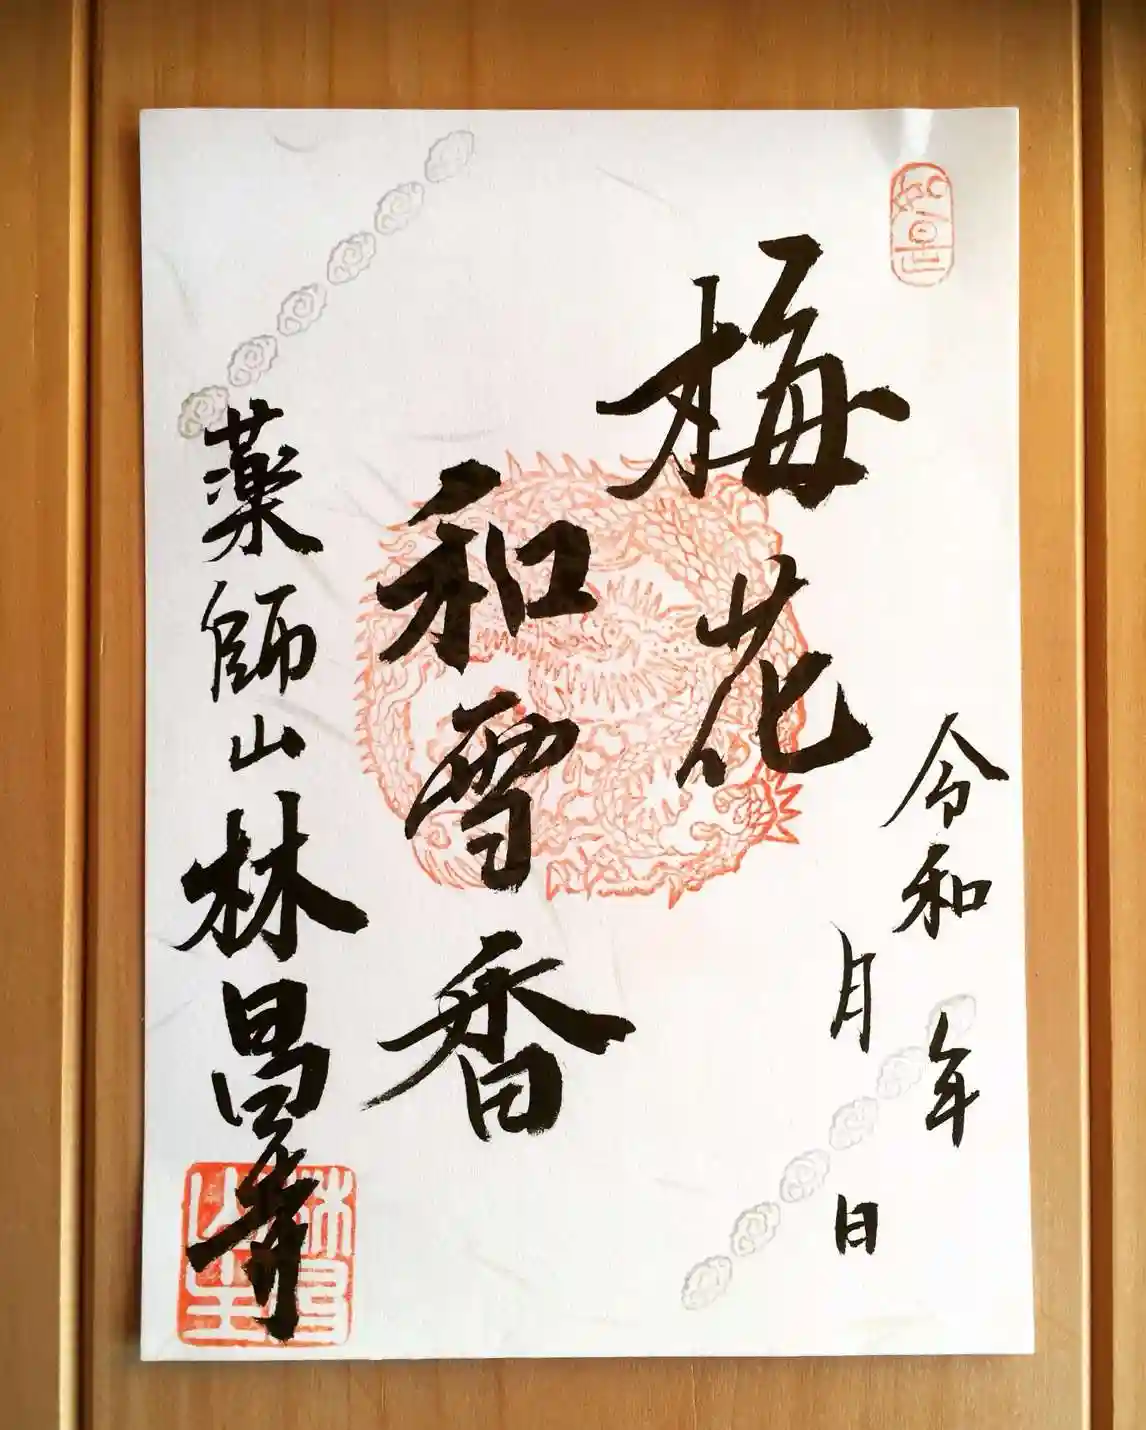 令和 年
月 日
梅花
和雪香
薬師山林昌寺